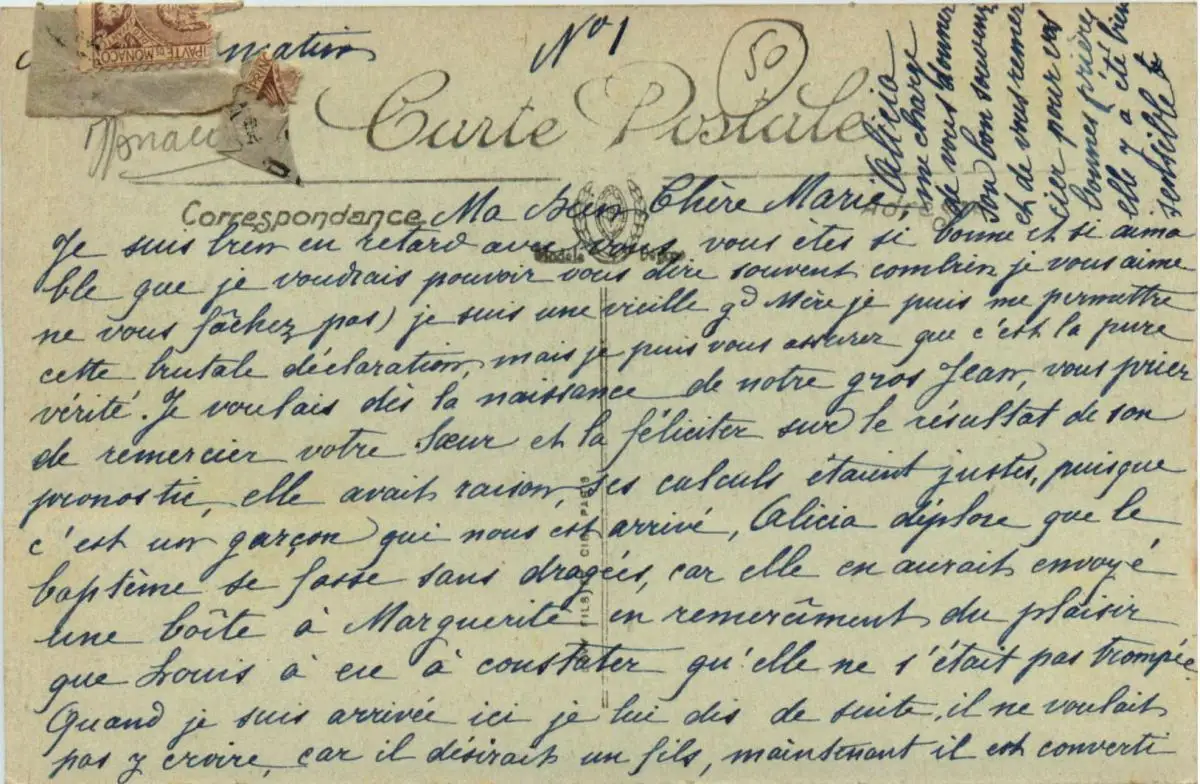 mation
N° 1
50
IPAUTE DE MONACO
Monaco
Carte Postale
Correspondance
Ma Bien Chère Marie,
Je suis bien en retard avec vous, vous êtes si bonne et si aima
ble que je voudrais pouvoir vous dire souvent combien je vous aime
ne vous fâchez pas) je suis une vieille gd Mère je puis me permettre
cette brutale déclaration, mais je puis vous assurer que c'est la pure
vérité. Je voulais dès la naissance de notre gros Jean, vous prier
de remercier votre Sœur et la féliciter sur le résultat de son
pronostic, elle avait raison, ses calculs étaient justes, puisque
c'est un garçon qui nous est arrivé, Alicia déplore que le
baptême se fasse sans dragées, car elle en aurait envoyé
une boîte à Marguerite en remerciment du plaisir
que Louis à eu à constater qu'elle ne s'était pas trompée
Quand je suis arrivée ici je lui dis de suite, il ne voulait
pas y croire, car il désirait un fils, maintenant il est converti
Alicia
me charge
de vous donner
son bon souvenir
et de vous remer
cier pour vos
bonnes prières
elle y a été bien
sensible
FILS) CIG PARIS